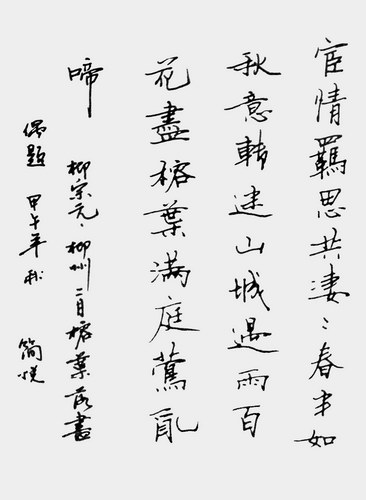 宦情羈思共淒〻春半如
秋意轉迷山城過雨百
花盡榕葉滿庭鶯亂
啼
柳宗元、柳州二月榕葉落書
偶題 甲午年秋 簡悅